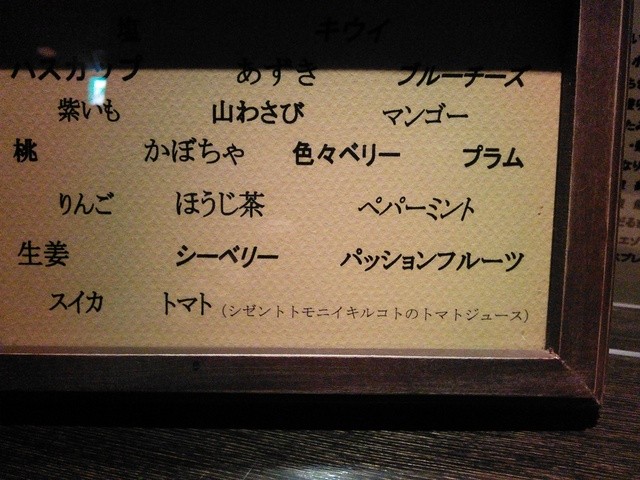 塩 キウイ
ハスカップ あずき ブルーチーズ
紫いも 山わさび マンゴー
桃 かぼちゃ 色々ベリー プラム
りんご ほうじ茶 ペパーミント
生姜 シーベリー パッションフルーツ
スイカ トマト (シゼントトモニイキルコトのトマトジュース)